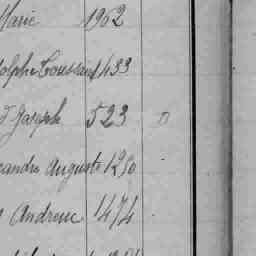 Marie 1902
dolphe Toussaint 433
Joseph 523
xandre Auguste 1250
Andrieu 1474